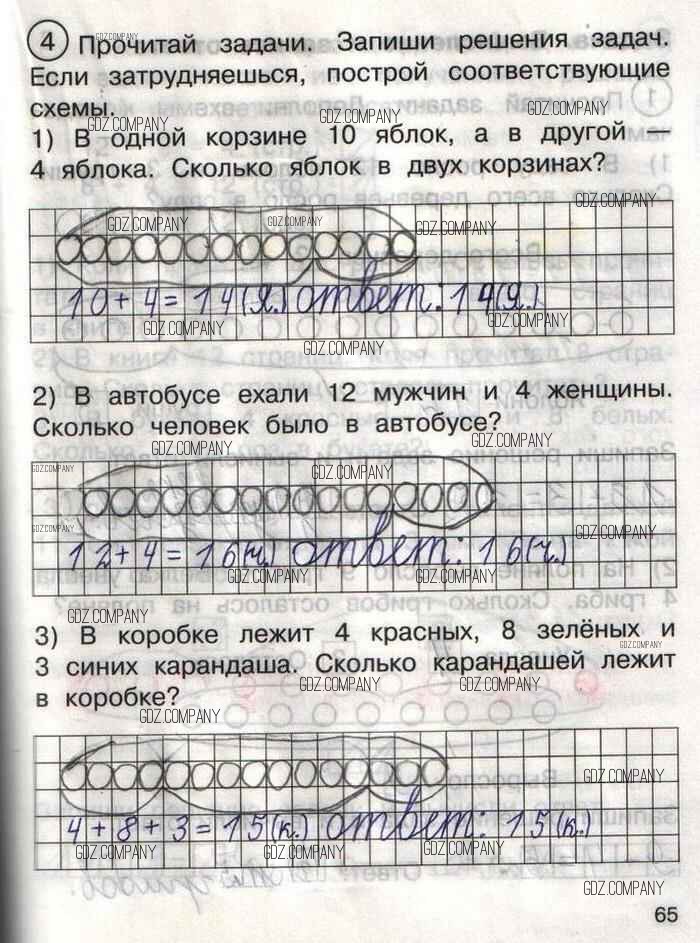 4 Прочитай задачи. Запиши решения задач.
Если затрудняешься, построй соответствующие
схемы.
1) В одной корзине 10 яблок, а в другой —
4 яблока. Сколько яблок в двух корзинах?
10+4=14(я.) ответ: 14(я.)
2) В автобусе ехали 12 мужчин и 4 женщины.
Сколько человек было в автобусе?
12+4=16(ч.) ответ: 16(ч.)
3) В коробке лежит 4 красных, 8 зелёных и
3 синих карандаша. Сколько карандашей лежит
в коробке?
4+8+3=15(к.) ответ: 15(к.)
65
GDZ.COMPANY